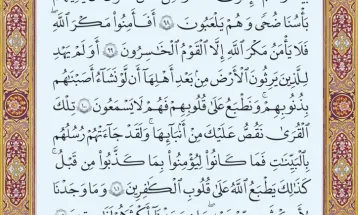 بَأْسُنَا ضُحًى وَهُمْ يَلْعَبُونَ ﴿٩٨﴾ أَفَأَمِنُوا۟ مَكْرَ ٱللَّهِ
فَلَا يَأْمَنُ مَكْرَ ٱللَّهِ إِلَّا ٱلْقَوْمُ ٱلْخَـٰسِرُونَ ﴿٩٩﴾ أَوَلَمْ يَهْدِ
لِلَّذِينَ يَرِثُونَ ٱلْأَرْضَ مِنۢ بَعْدِ أَهْلِهَآ أَن لَّوْ نَشَآءُ أَصَبْنَـٰهُم
بِذُنُوبِهِمْ ۚ وَنَطْبَعُ عَلَىٰ قُلُوبِهِمْ فَهُمْ لَا يَسْمَعُونَ ﴿١٠٠﴾ تِلْكَ
ٱلْقُرَىٰ نَقُصُّ عَلَيْكَ مِنْ أَنۢبَآئِهَا ۚ وَلَقَدْ جَآءَتْهُمْ رُسُلُهُم
بِٱلْبَيِّنَـٰتِ فَمَا كَانُوا۟ لِيُؤْمِنُوا۟ بِمَا كَذَّبُوا۟ مِن قَبْلُ ۚ
كَذَٰلِكَ يَطْبَعُ ٱللَّهُ عَلَىٰ قُلُوبِ ٱلْكَـٰفِرِينَ ﴿١٠١﴾ وَمَا وَجَدْنَا